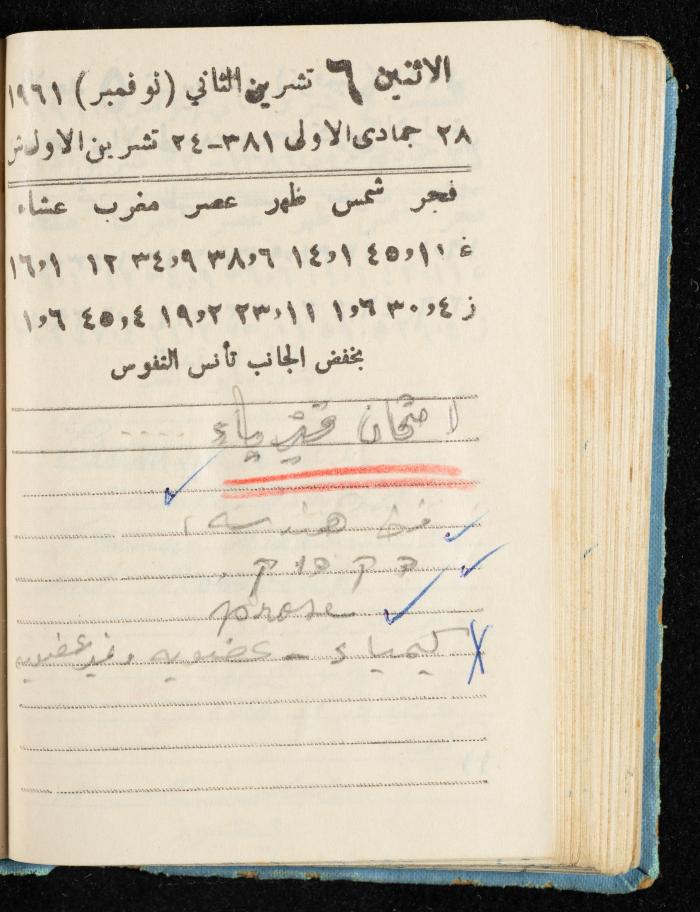 الاثنين ٦ تشرين الثاني (نوفمبر) ١٩٦١
٢٨ جمادى الاولى ٣٨١-٢٤ تشرين الاول ش
فجر شمس ظهر عصر مغرب عشاء
غ ١١و٤٥ ١و١٤ ٦و٣٨ ٩و٣٤ ١٢ ١و١٦
ز ٤و٣٠ ٦و١ ١١و٢٣ ٢و١٩ ٤و٤٥ ٦و١
بخفض الجانب تأنس النفوس
امتحان فيزياء
هندسه
prose
كيمياء - عضويه وغير عضويه